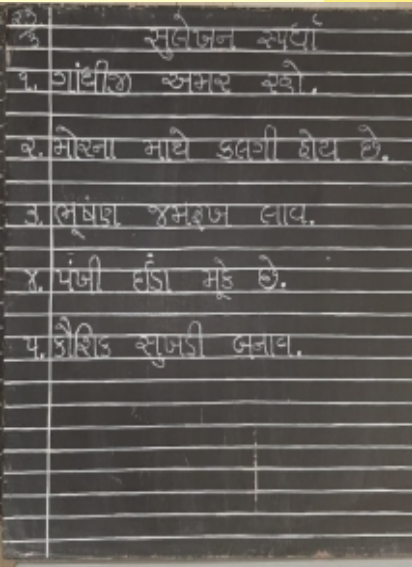 સુલેખન સ્પર્ધા
૧. ગાંધીજી અમર રહો.
૨. મોરના માથે કલગી હોય છે.
૩. ભૂષણ જમરૂખ લાવ.
૪. પંખી ઈંડા મૂકે છે.
૫. કૌશિક સુખડી બનાવ.